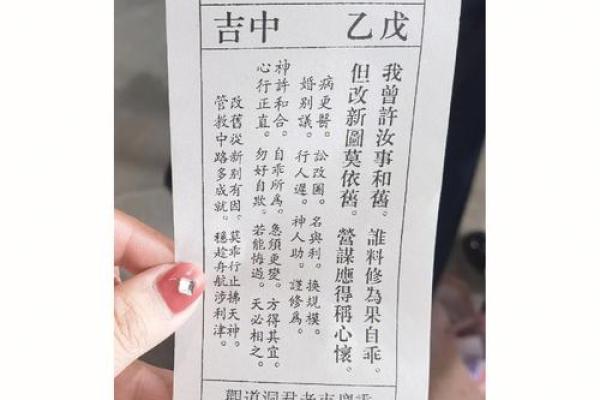 戊乙
中吉
我曾許汝事和諧。誰料修為果自乖。
但改新圖莫依舊。營謀應得稱心懷。
病更醫。訟改圖。名與利。換規模。
婚別議。行人遲。神人助。謹修爲。
神許和合。自乖所爲。急須更變。方得其宜。
心行正直。勿好自欺。若能悔過。天必相之。
改舊從新別有因。莫乖行止拂天神。
管教中路多成就。穩趁舟航涉利津。
重慶市老君洞道觀